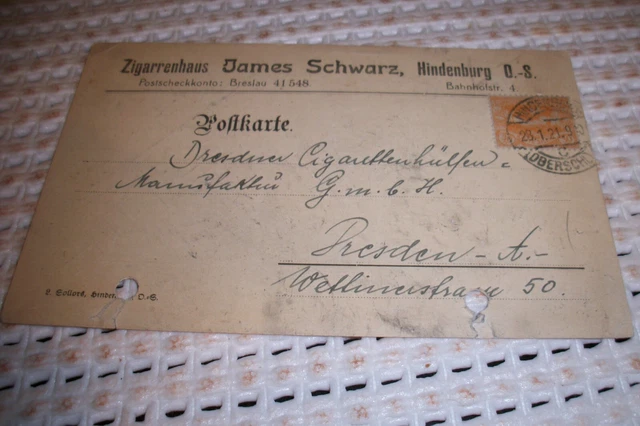 Zigarrenhaus James Schwarz, Hindenburg O.-S.
Postscheckkonto: Breslau 41548.
Bahnhofstr. 4.
Postkarte.
28.1.21.9
(OBERSCH
Dresdner Cigarettenhülsen-
Manufaktur G.m.b.H.
Dresden-A.-
Wettinerstrasse 50.
O.-S.